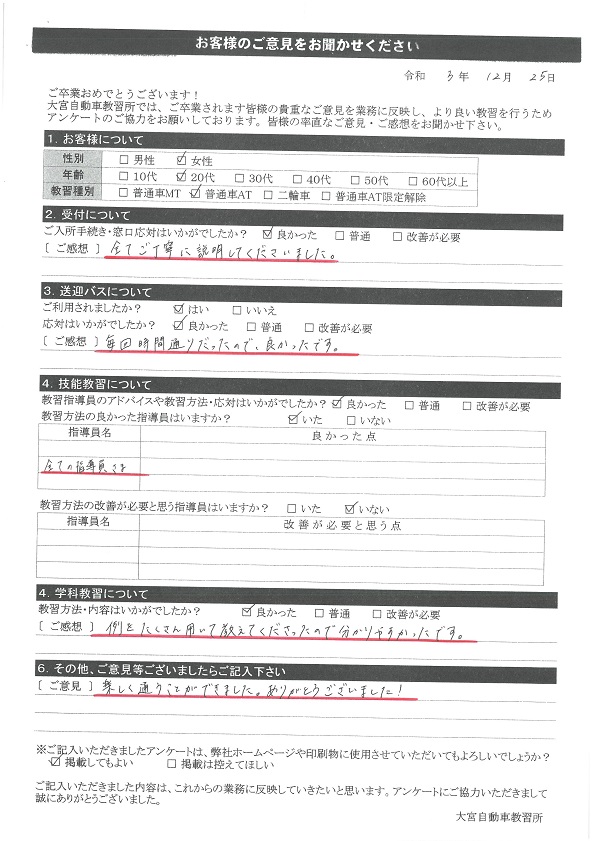 お客様のご意見をお聞かせください
令和 3年 12月 25日
ご卒業おめでとうございます!
大宮自動車教習所では、ご卒業されます皆様の貴重なご意見を業務に反映し、より良い教習を行うため
アンケートのご協力をお願いしております。皆様の率直なご意見・ご感想をお聞かせ下さい。
1. お客様について
性別 □ 男性 ☑ 女性
年齢 □ 10代 ☑ 20代 □ 30代 □ 40代 □ 50代 □ 60代以上
教習種別 □ 普通車MT ☑ 普通車AT □ 二輪車 □ 普通車AT限定解除
2. 受付について
ご入所手続き・窓口応対はいかがでしたか? ☑ 良かった □ 普通 □ 改善が必要
[ ご感想 ] 全てご丁寧に説明してくださいました。
3. 送迎バスについて
ご利用されましたか? ☑ はい □ いいえ
応対はいかがでしたか? ☑ 良かった □ 普通 □ 改善が必要
[ ご感想 ] 毎回時間通りだったので、良かったです。
4. 技能教習について
教習指導員のアドバイスや教習方法・応対はいかがでしたか? ☑ 良かった □ 普通 □ 改善が必要
教習方法の良かった指導員はいますか? ☑ いた □ いない
指導員名 良かった点
全ての指導員さま
教習方法の改善が必要と思う指導員はいますか? □ いた ☑ いない
指導員名 改善が必要と思う点
4. 学科教習について
教習方法・内容はいかがでしたか? ☑ 良かった □ 普通 □ 改善が必要
[ ご感想 ] 例をたくさん用いて教えてくださったので分かりやすかったです。
6. その他、ご意見等ございましたらご記入下さい
[ ご意見 ] 楽しく通うことができました。ありがとうございました!
※ご記入いただきましたアンケートは、弊社ホームページや印刷物に使用させていただいてもよろしいでしょうか?
☑ 掲載してもよい □ 掲載は控えてほしい
ご記入いただきました内容は、これからの業務に反映していきたいと思います。アンケートにご協力いただきまして
誠にありがとうございました。
大宮自動車教習所